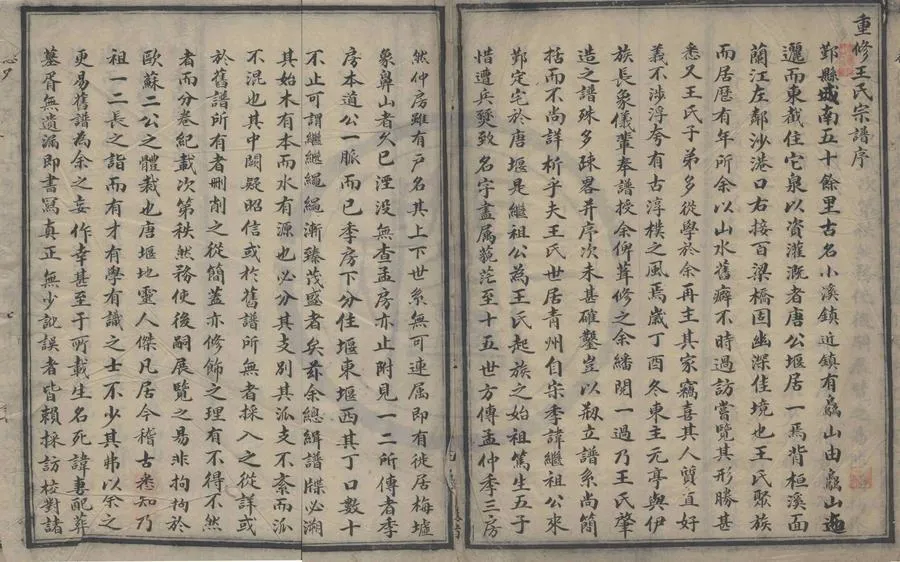 重修王氏宗譜序
鄞縣城南五十餘里古名小溪鎮近鎮有鳥山由鳥山迤
邐而東截住它泉以資灌溉者唐公堰居一焉背桓溪面
蘭江左鄰沙港口右接百梁橋固幽深佳境也王氏聚族
而居歷有年所余以山水舊癖不時過訪嘗覽其形勝甚
悉又王氏子弟多從學於余再主其家竊喜其人質直好
義不涉浮夸有古淳樸之風焉歲丁酉冬東主元亭與伊
族長象儀輩奉譜授余俾葺修之余繙閱一過乃王氏肇
造之譜殊多疎畧并序次未甚確鑿豈以剏立譜系尚簡
括而不尚詳析乎夫王氏世居青州自宋季諱繼祖公來
鄞定宅於唐堰是繼祖公為王氏起族之始祖篤生五子
惜遭兵燹致名字盡屬藐茫至十五世方傳孟仲季三房
然仲房雖有戶名其上下世系無可連属即有徙居梅墟
象鼻山者久已湮没無查孟房亦止附見一二所傳者季
房本道公一脈而已季房下分住堰東堰西其丁口數十
不止可謂繼繼繩繩漸臻茂盛者矣茲余總緝譜牒必溯
其始木有本而水有源也必分其支別其派支不紊而派
不混也其中闕疑昭信或於舊譜所無者採入之從詳或
於舊譜所有者刪削之從簡蓋亦修飾之理有不得不然
者而分卷紀載次第秩然務使後嗣展覽之易非拘拘於
歐蘇二公之體裁也唐堰地靈人傑凡居今稽古悉知乃
祖一二長之詣而有才有學有識之士不少其弗以余之
更易舊譜為余之妄作幸甚至于所載生名死諱妻配葬
墓胥無遺漏即書寫真正無少訛誤者皆賴採訪校對諸